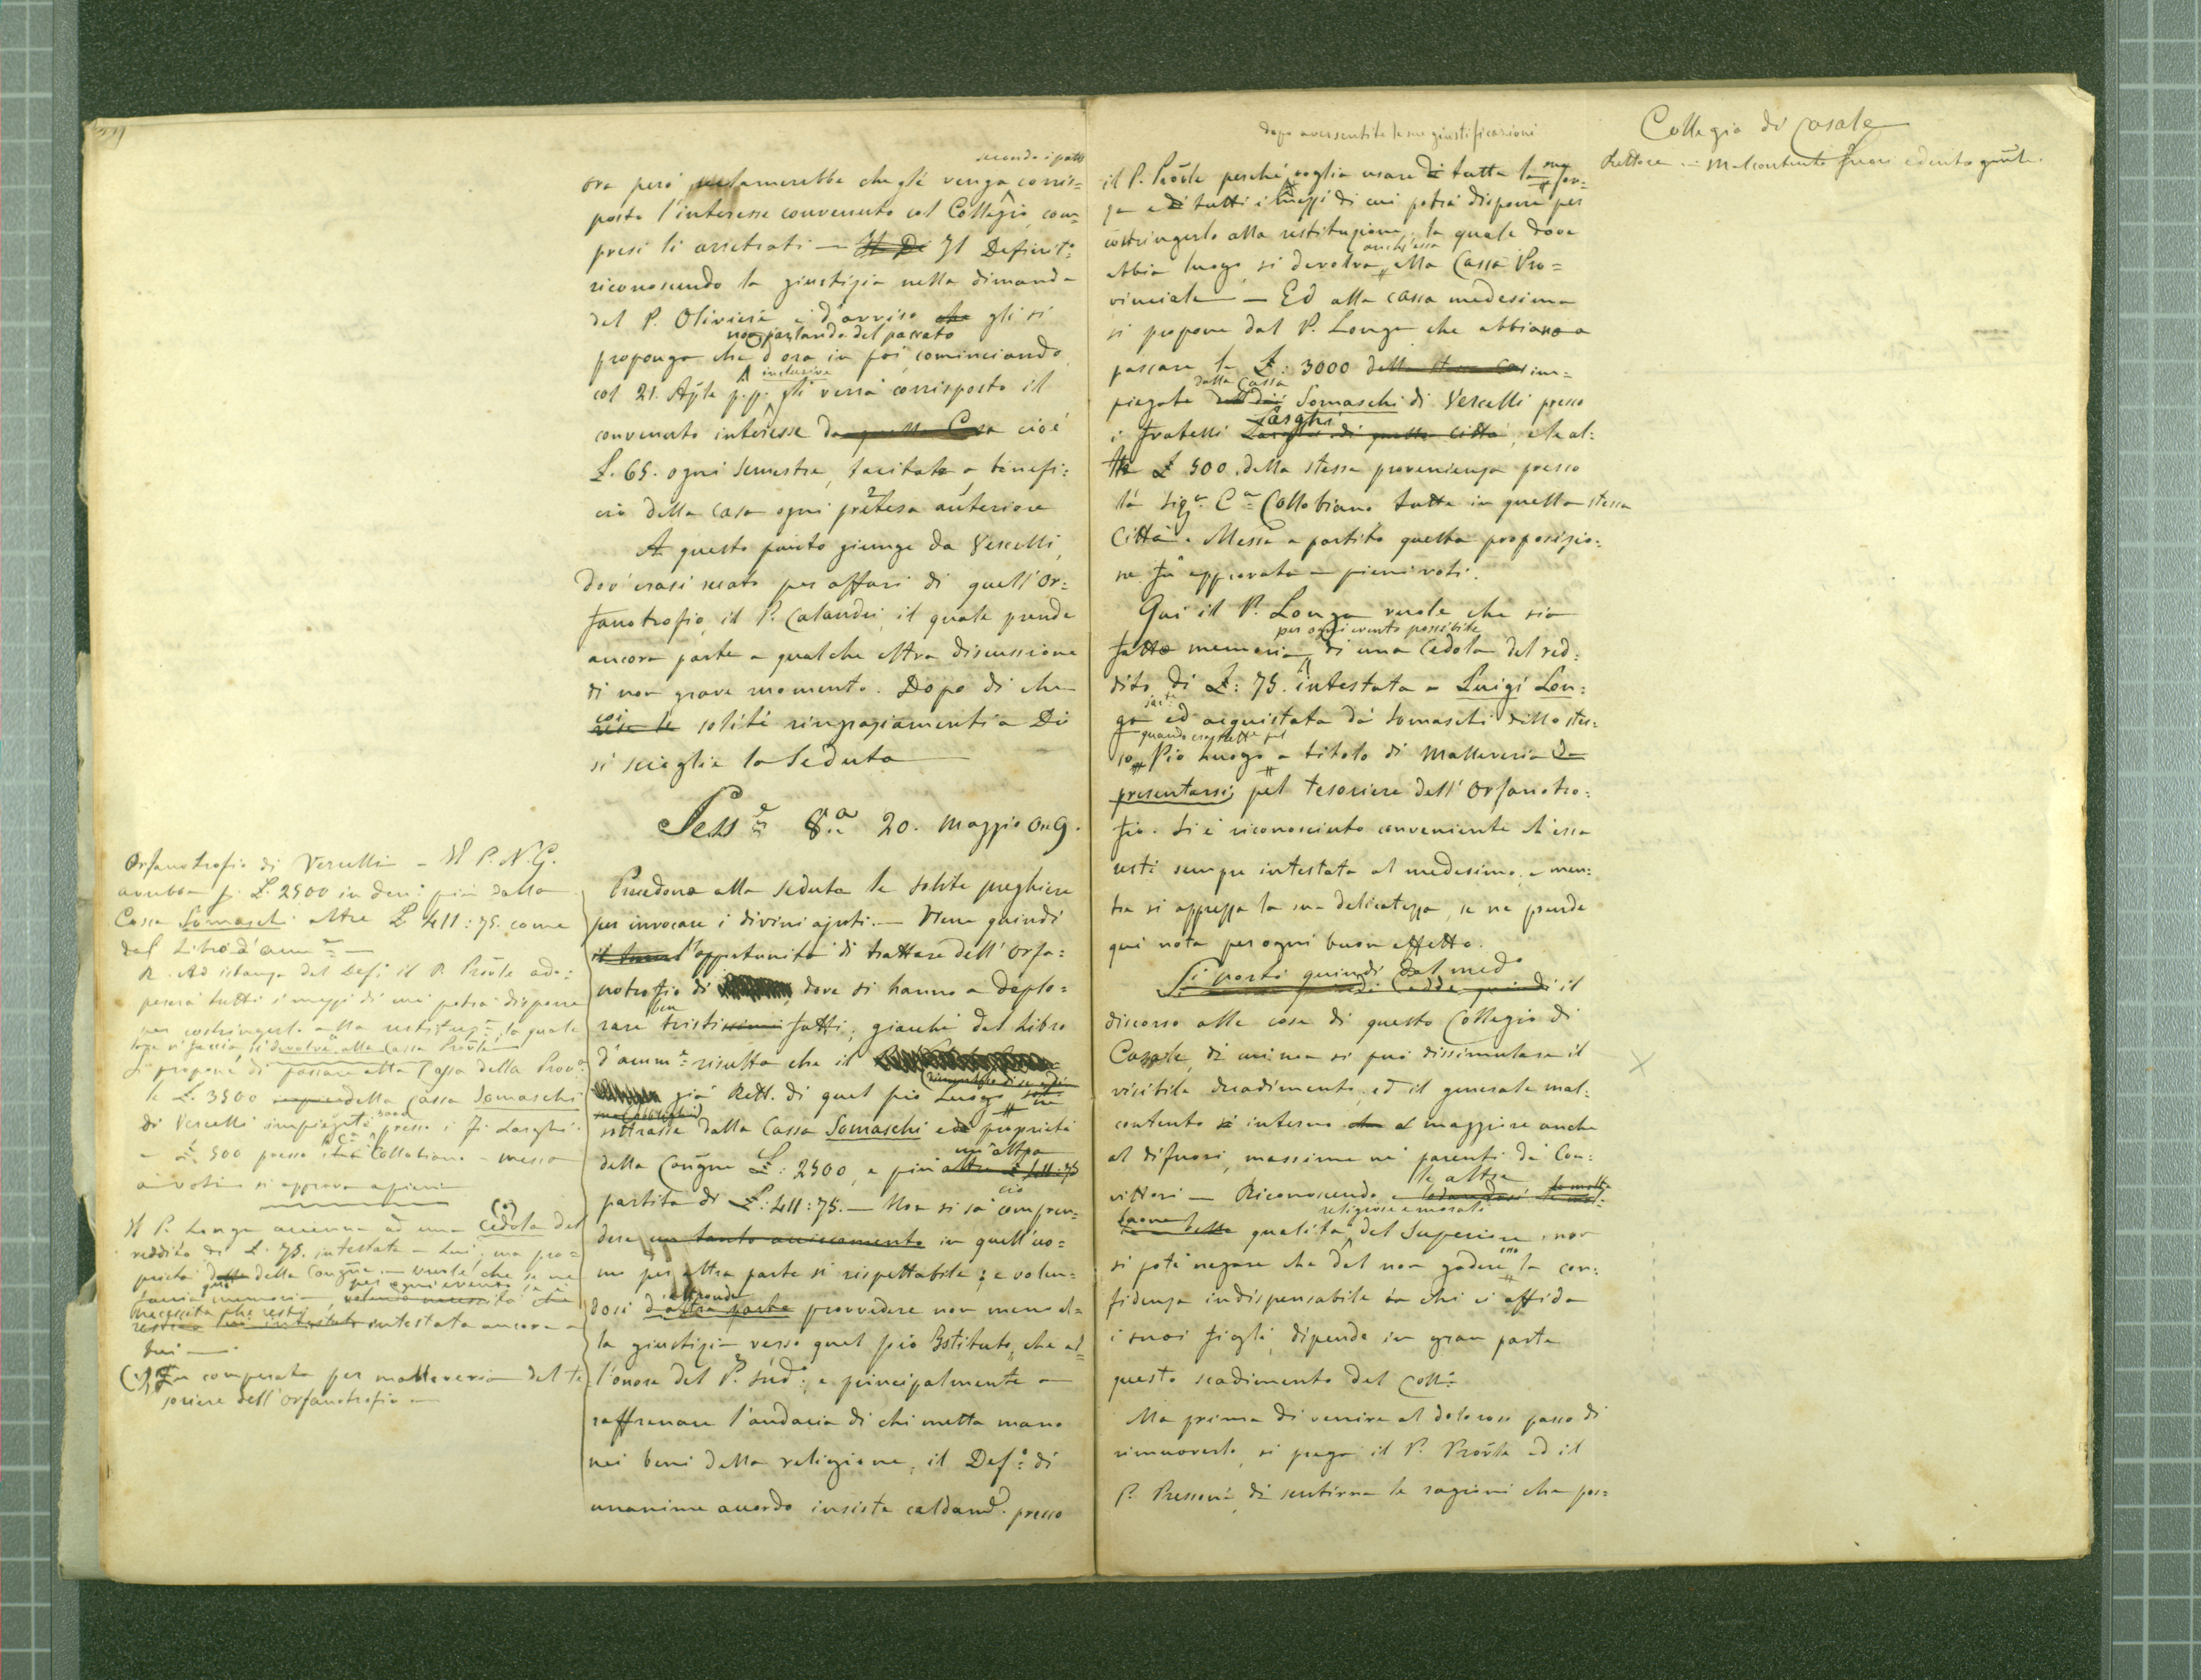 secondo i patti
ora però reclamerebbe che gli venga corris=
posto l'interesse convenuto col Collegio, com=
presi li arretrati — Il De Il Definit:º
riconoscendo la giustizia nella dimanda
del P. Olivieri è d'avviso che gli si
non parlando del passato
proponga che d'ora in poi, cominciando
inclusive
col 21. Aple p.p. gli verrà corrisposto il
convenuto interesse da quella Casa cioè
L. 65. ogni semestre, tacitata a benefi:
cio della casa ogni pretesa anteriore
A questo punto giunge da Vercelli,
dov'erasi recato per affari di quell'Or:
fanotrofio, il P. Calandri, il quale prende
ancora parte a qualche altra discussione
di non grave momento. Dopo di che
coi
rese le soliti ringraziamenti a Dio
si scioglie la Seduta
Sess.e 8.a 20. Maggio
Precedono alla seduta le solite preghiere
per invocare i divini ajuti. — Viene quindi
l'opportunità di trattare dell'Orfa:
notrofio di dove si hanno a deplo=
ben
rare tristissimi fatti, giacchè dal Libro
d'amm.e risulta che il
già Rett. di quel pio Luogo
sottrasse dalla Cassa Somaschi e di proprietà
un'altra
della Congne L: 2500, e più altre L. 411:75
partita di L: 411:75. — Non si sa compren=
ciò
dere un tanto in quell'uo=
mo per altra parte sì rispettabile; e volen=
altronde
dosi d'altra parte provvedere non meno al=
la giustizia verso quel pio Istituto, che al=
l'onore del P. sud.º, e principalmente a
raffrenare l'audacia di chi metta mano
nei beni della religione, il Def.º di
unanime accordo insiste caldam.e presso
Orfanotrofio di Vercelli — Il P. N. G.
avrebbe L. 2500 in più dalla
Cassa Somaschi altre L 411:75. come
dal Libro d'amm.e —
R. Ad istanza del Def. il P. Prõvle ado:
pererà tutti i mezzi di cui potrà disporre
per costringerlo alla restituz.e, la quale
si devolva alla Cassa Prõvle
Si propone di passare alla Cassa della Prov.a
le L. 3500 della Cassa Somaschi
di Vercelli impiegate 3000 presso i F. Larghi
e L. 500 presso Collobiano — messa
ai voti si approva a pieni
Il P. Longa accenna ad una Cedola del
reddito di L. 75. intestata a Lui, ma pro=
prietà della Congne. — Vuole che se ne
per ogni evento
faccia memoria,
intestata ancora a
Lui —
Fu comperata per malleveria del te
soriere dell'Orfanotrofio —
dopo aver sentite le sue giustificazioni
il P. Prõvle perchè voglia usare di tutta la sua for=
za e di tutti i mezzi di cui potrà disporre per
costringerlo alla restituzione, la quale dove
anch'essa
abbia luogo, si devolva alla Cassa Pro=
vinciale — Ed alla cassa medesima
si propone dal P. Longa che abbiano a
passare le L: 3000 della stessa Cas im=
dalla Cassa
piegate Somaschi di Vercelli presso
Larghi
i fratelli Larghi di quella città, e le al:
tre L 500. della stessa provenienza presso
la Sig.a C.a Collobiano tutte in quella stessa
Città. Messa a partito questa proposizio:
ne fu approvata a pieni voti.
Qui il P. Longa vuole che sia
per ogni evento possibile
fatto memoria di una Cedola del red:
dito di L: 75. intestata a Luigi Lon:
ga ed acquistata da' Somaschi dello stes:
quando era Rett.e pel
so Pio Luogo a titolo di malleveria da
presentarsi pel tesoriere dell'Orfanotro:
fio. Si è riconosciuto conveniente ch'essa
resti sempre intestata al medesimo, e men:
tre si apprezza la sua delicatezza, se ne prende
qui nota per ogni buon effetto.
Si portò quindi dal med.º
Cadde quindi il
discorso alle cose di questo Collegio di
Casale, di cui non si può dissimulare il
visibile decadimento, ed il generale mal:
contento sì interno che al maggiore anche
al difuori, massime ne' parenti de' Con:
le altre
vittori — Riconoscendo e lodandosi le molte
religiose e morali
buone belle qualità del Superiore, non
si potè negare che dal non godere esso la con:
fidenza indispensabile in chi ci affida
i suoi figli, dipende in gran parte
questo scadimento del Coll.º
Ma prima di venire al doloroso passo di
rimuoverlo, si prega il P. Prõvle ed il
P. Pressoni di sentirne le ragioni che pos=
Collegio di Casale
Rettore — Malcontento fuori e dentro